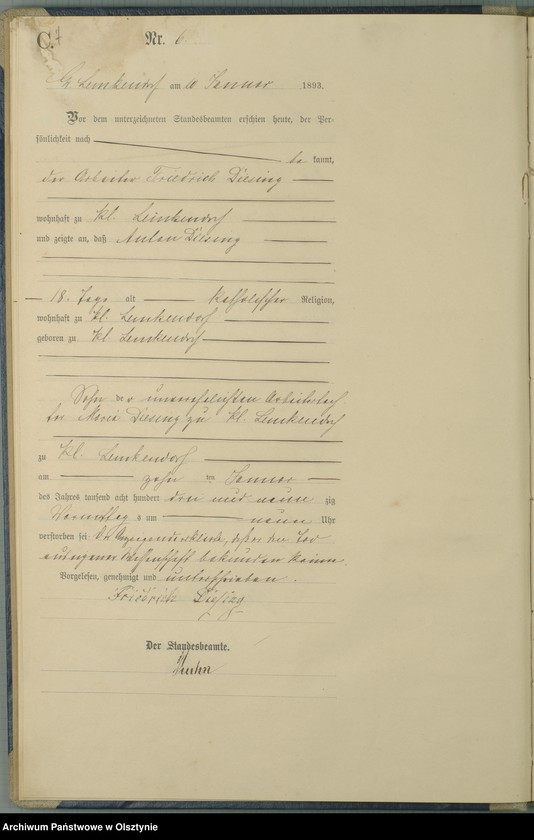 C. 7
Nr. 6.
Gr. Lemkendorf am 10 Januar 1893.
Vor dem unterzeichneten Standesbeamten erschien heute, der Per-
sönlichkeit nach
be kannt,
der Arbeiter Friedrich Diesing
wohnhaft zu Kl. Lemkendorf
und zeigte an, daß Anton Diesing
18. Tage alt katholischer Religion,
wohnhaft zu Kl. Lemkendorf
geboren zu Kl. Lemkendorf
Sohn der unverehelichten Arbeitertoch
ter Maria Diesing zu Kl. Lemkendorf
zu Kl. Lemkendorf
am zehn ten Januar
des Jahres tausend acht hundert drei und neun zig
Vormittag s um neun Uhr
verstorben sei Der Anzeigende erklärte, daß er den Tod
aus eigener Wissenschaft bekunden könne
Vorgelesen, genehmigt und unterschrieben.
Friedrich Diesing
Der Standesbeamte.
Archiwum Państwowe w Olsztynie